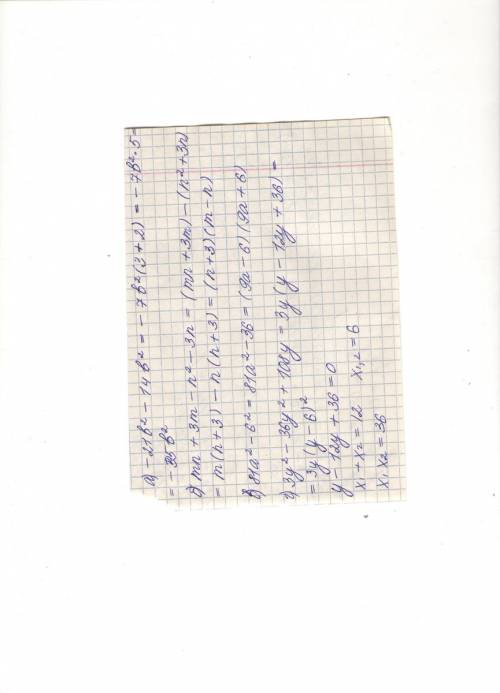 а) -21b² - 14b² = -7b²(3+2) = -7b²·5=
= -35b²
б) mn + 3m - n² - 3n = (mn + 3m) - (n² + 3n)
= m(n+3) - n(n+3) = (n+3)(m-n)
в) 81a² - 6² = 81a² - 36 = (9a - 6)(9a + 6)
г) 3y² - 36y² + 108y = 3y(y - 12y + 36) =
= 3y(y - 6)²
y - 12y + 36 = 0
x₁ + x₂ = 12 x₁,₂ = 6
x₁x₂ = 36